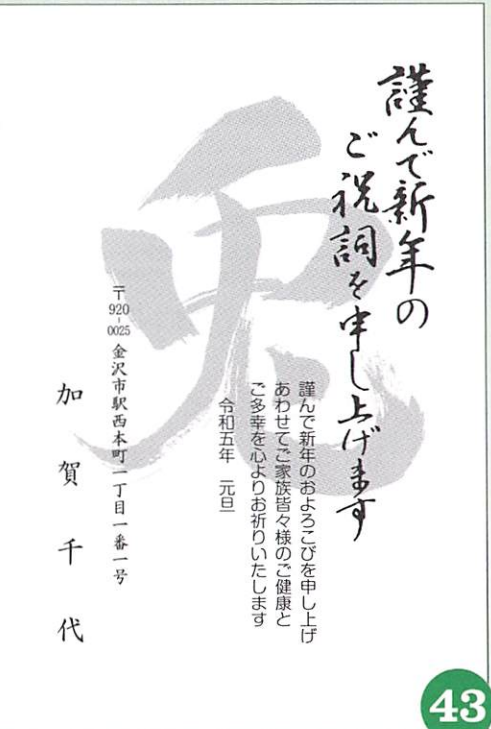 謹んで新年の
ご祝詞を申し上げます
兎
謹んで新年のおよろこびを申し上げ
あわせてご家族皆々様のご健康と
ご多幸を心よりお祈りいたします
令和五年 元旦
〒920-0025 金沢市駅西本町一丁目一番一号
加賀千代
43